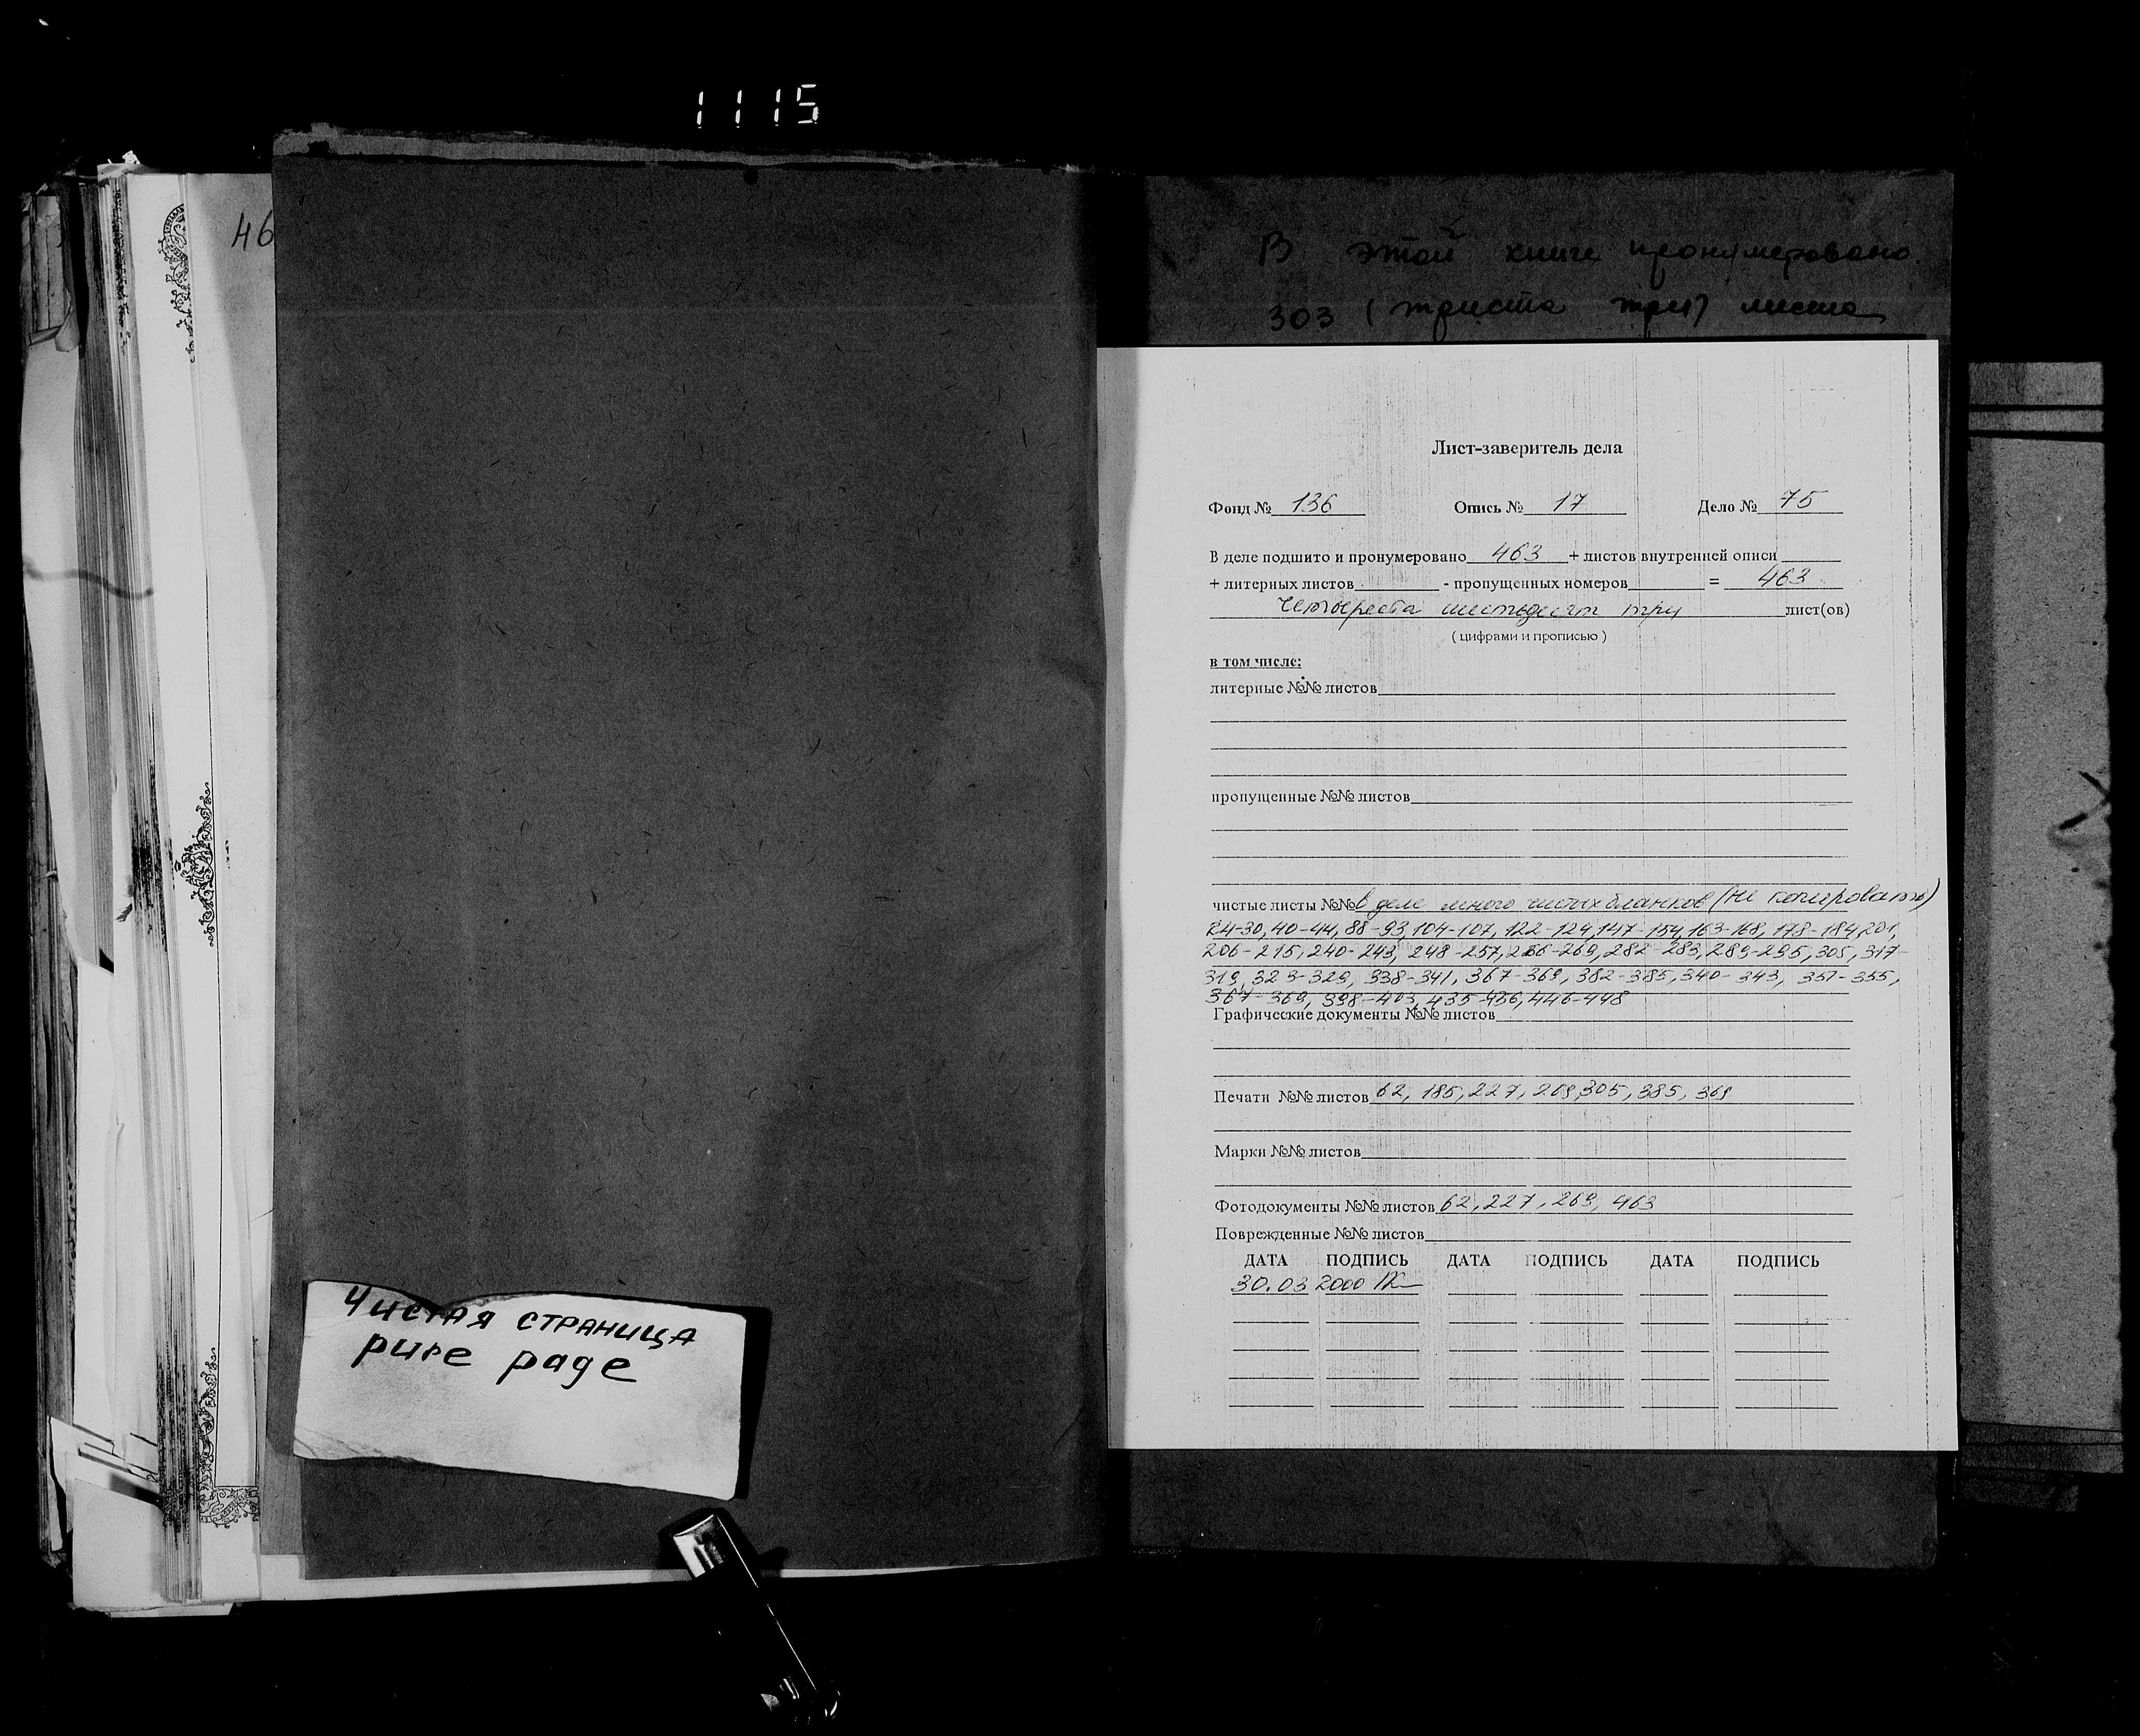 1115
46
В этой книге пронумеровано
303 (триста три) листа
Лист-заверитель дела
Фонд № 136 Опись № 17 Дело № 75
В деле подшито и пронумеровано 463 + листов внутренней описи
+ литерных листов - пропущенных номеров = 463
Четыреста шестьдесят три лист(ов)
( цифрами и прописью )
в том числе:
литерные №№ листов
пропущенные №№ листов
чистые листы №№ в деле много чистых бланков (не копировать)
24-30, 40-44, 88-93, 104-107, 122-124, 147-154, 163-168, 178-184, 201,
206-215, 240-243, 248-257, 266-269, 282-283, 289-295, 305, 317-
319, 323-329, 338-341, 367-369, 382-385, 340-343, 351-355,
367-369, 398-403, 435-436, 446-448
Графические документы №№ листов
Печати №№ листов 62, 185, 227, 269, 305, 385, 369
Марки №№ листов
Фотодокументы №№ листов 62, 227, 269, 463
Поврежденные №№ листов
ДАТА ПОДПИСЬ ДАТА ПОДПИСЬ ДАТА ПОДПИСЬ
30.03 2000
Чистая страница
pure page